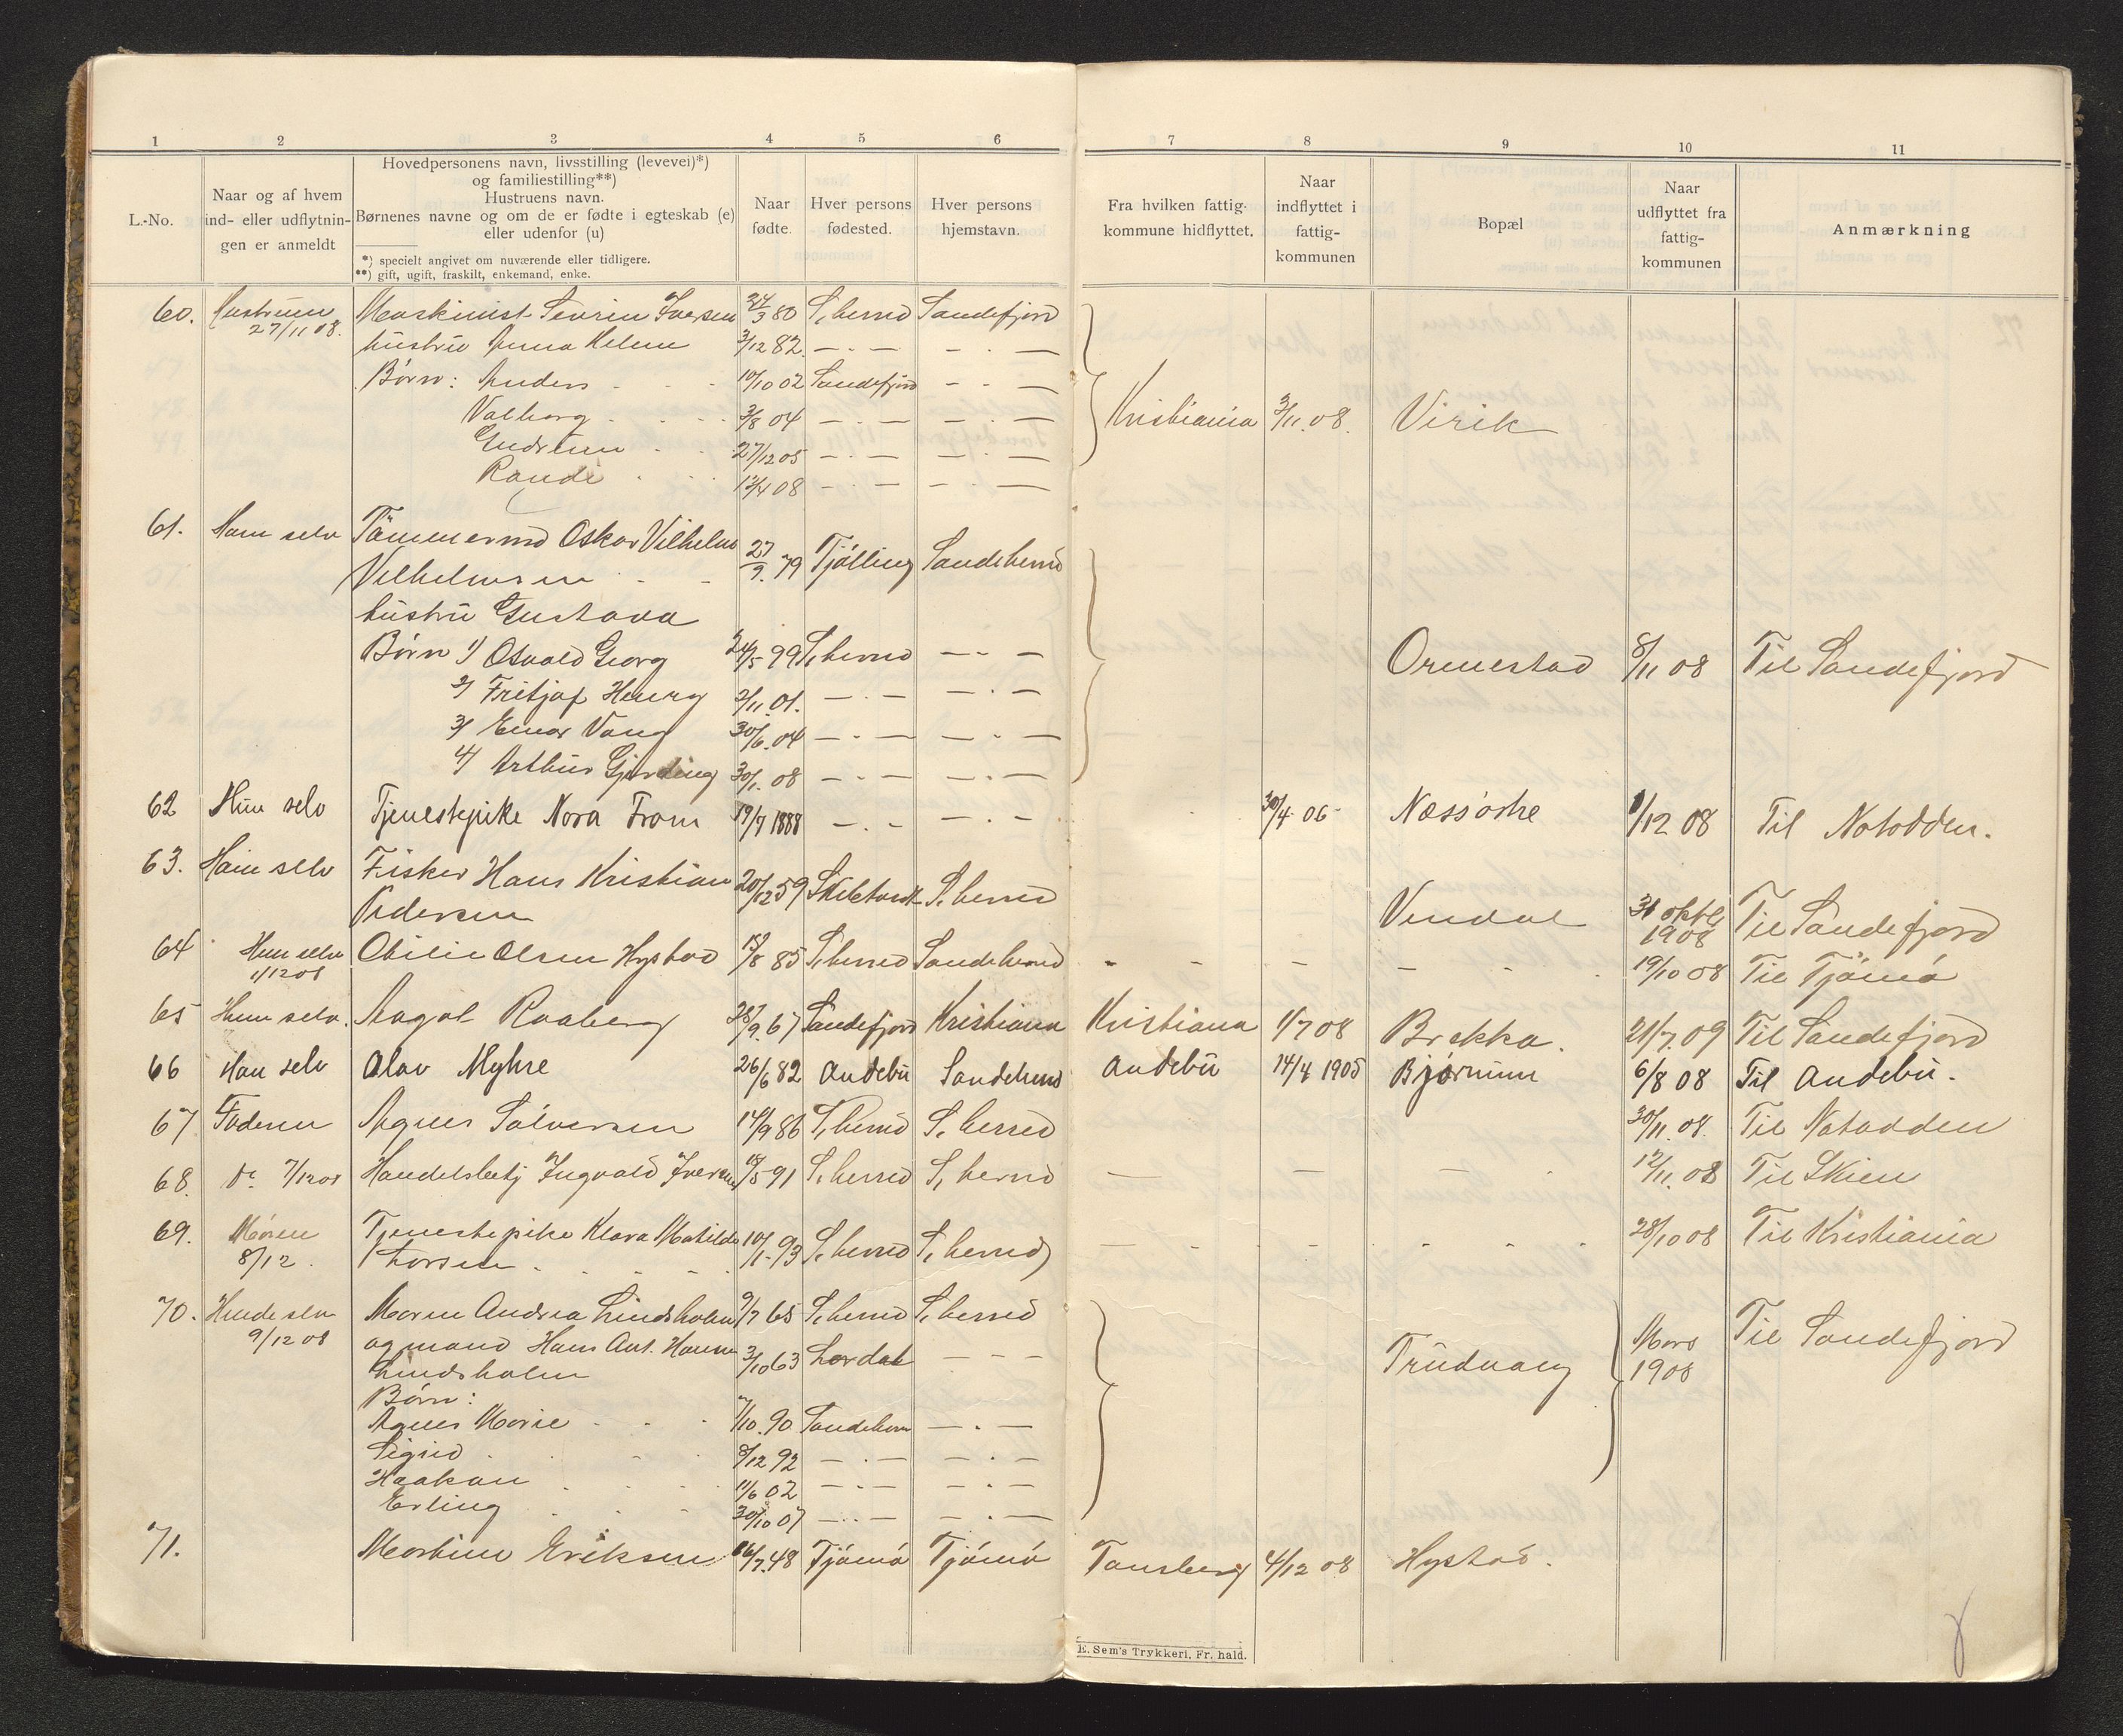 1 2 3 4 5 6 7 8 9 10 11
L.-No.
Naar og af hvem
ind- eller udflytnin-
gen er anmeldt
Hovedpersonens navn, livsstilling (levevei)*)
og familiestilling**)
Hustruens navn.
Børnenes navne og om de er fødte i egteskab (e)
eller udenfor (u)
*) specielt angivet om nuværende eller tidligere.
**) gift, ugift, fraskilt, enkemand, enke.
Naar
fødte.
Hver persons
fødested.
Hver persons
hjemstavn.
Fra hvilken fattig-
kommune hidflyttet.
Naar
indflyttet i
fattig-
kommunen
Bopæl
Naar
udflyttet fra
fattig-
kommunen
Anmærkning
60. Hustruen Maskinist Sevrin Iversen 24/3 80 S. herred Sandefjord
27/11 08. hustru Anna Helene 3/12 82 — . — — . —
Børn: Anders 10/10 02 Sandefjord — . —
Valborg 3/8 04 — . — — . — Kristiania 3/11 08. Virik
Gudrun 27/12 05 — . — — . —
Randi 13/4 08 — . — — . —
61. Han selv Tømmermd Oskar Vilhelm
Vilhelmsen 27/9. 79 Tjølling Sandeherred
hustru Gustava
Børn 1) Osvald Georg 24/5 99 S. herred — - — Ormestad 8/11 08 Til Sandefjord
2) Fritjof Henry 2/11. 01. — . — — . —
3) Einar Vang 30/6. 04 — . — — . —
4) Arthur Gjerding 30/1. 08 — . — — . —
62 Hun selv Tjenestepike Nora From 19/7 1888 — . - — . — 30/4 06 Næss østre 1/12 08 Til Notodden.
63. Han selv Fisker Hans Kristian 20/12 59 S. herred
Pedersen Vindal 31 oktb 1908 Til Sandefjord
64 Hun selv Otilie Olsen Hystad 18/8 85 S. herred Sandeherred 19/10 08 Til Tjømø
1/12 08
65 Hun selv. Aagot Raaberg 28/9. 67 Sandefjord Kristiania Kristiana 1/7 08 Brekka. 21/7. 09 Til Sandefjord
66 Han selv Olav Myhre 26/6 82 Andebu Sandeherred Andebu 14/4 1905 Bjørnum 6/8 08 Til Andebu.
67 Faderen Agnes Sølversen 14/9 86 S. herred S. herred 30/11. 08. Til Notodden
68. Do 7/12 08 Handelsbetj Ingvald Iversen 18/5 91 S. herred S. herred 12/11. 08 Til Skien
69. Moren Tjenestepike Klara Matilde 10/1. 93 S. herred S. herred 28/10 08 Til Kristiania
8/12. Thorsen
70. Hende selv Maren Andrea Lindsholm 9/7 65 S. herred S. herred
9/12 08 og mand Hans Ant. Hansen 3/10 63 Lardal — - — Trudvang Mars 1908 Til Sandefjord
Lindsholm
Børn:
Agnes Marie 7/10. 90 Sandeherr — . —
Sigrid 8/12 92 — . — — . —
Haakon 11/6 02 — . — — . —
Erling 20/10 07 — . — — . —
71. Martine Eriksen 16/7. 48 Tjømø Tjømø Tønsberg 4/12 08 Hystad.
E. Sem's Trykkeri, Fr. hald.